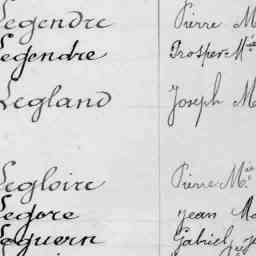 Legendre Pierre M
Legendre Prosper Mie
Legland Joseph M
Legloire Pierre Mie
Legore Jean Ma
Leguern Gabriel Je